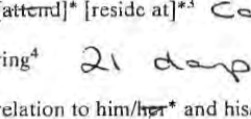 [attend]* [reside at]*³
ring⁴ 21 days
relation to him/her* and his/